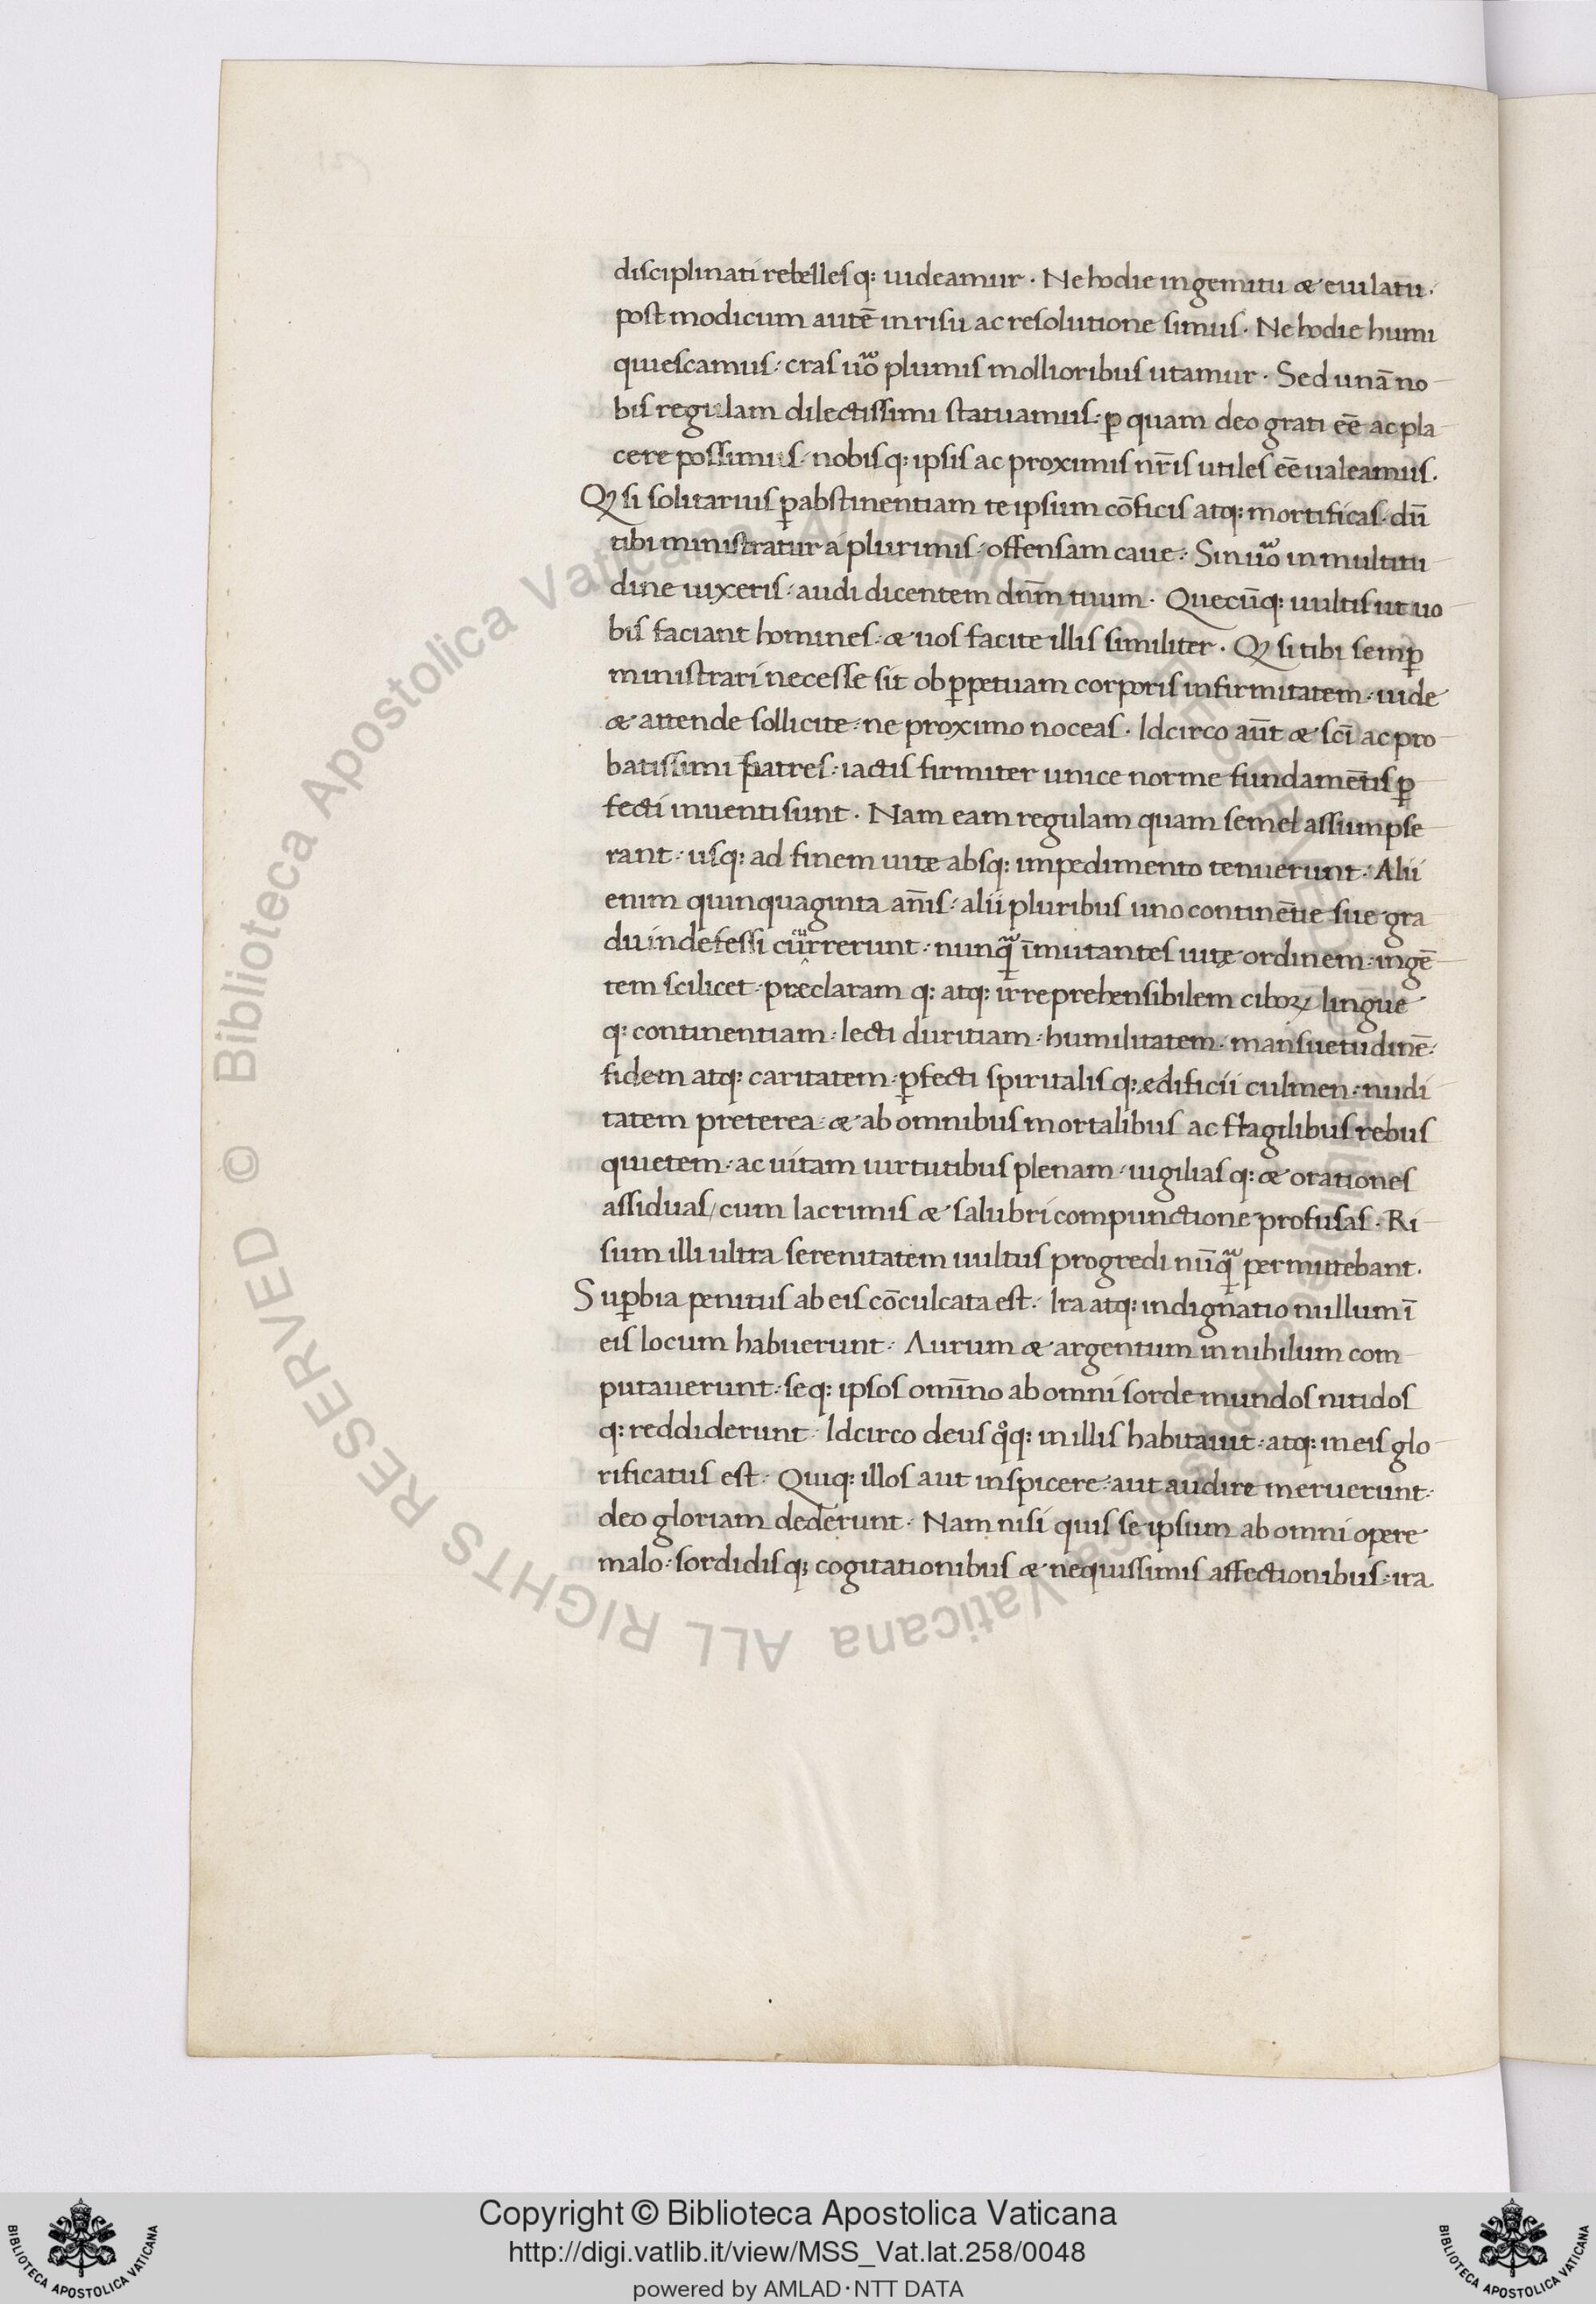 disciplinati rebellesq: uideamur · Ne hodie in gemitu & eiulatu·
post modicum autē in risu ac resolutione simus · Ne hodie humi
quiescamus: cras u͛o plumis mollioribus utamur · Sed unā no
bis regulam dilectissimi statuamus: ꝑ quam deo grati eē ac pla
cere possimus· nobisq: ipsis ac proximis nr̄is utiles eē ualeamus.
Qꝫ si solitarius ꝑ abstinentiam te ipsum cōficis atq: mortificas· dū
tibi ministratur á plurimis: offensam caue: Sin u͛o in multitu
dine uixeris: audi dicentem dn̄m tuum · Quecūq: uultis ut uo
bis faciant homines: & uos facite illis similiter · Qꝫ si tibi semꝑ
ministrari necesse sit ob ꝑpetuam corporis infirmitatem: uide
& attende sollicite: ne proximo noceas · Idcirco aūt & scī ac pro
batissimi patres: iactis firmiter unice norme fundamētis ꝑ
fecti inuenti sunt · Nam eam regulam quam semel assumpse
rant: usq: ad finem uitæ absq: impedimento tenuerunt: Alii
enim quinquaginta an̄is: alii pluribus uno continētie sue gra
du indefessi currerunt: nunqͣ īmutantes uitę ordinem: ingē
tem scilicet· præclaram q: atq: irreprehensibilem ciboꝝ lingue
q: continentiam: lecti duritiam: humilitatem· mansuetudinē:
fidem atq: caritatem: ꝑfecti spiritalisq: ędificii culmen: nudi
tatem preterea: & ab omnibus mortalibus ac fragilibus rebus
quietem: ac uitam uirtutibus plenam· uigiliasq: & orationes
assiduas/ cum lacrimis & salubri compunctione profusas · Ri
sum illi ultra serenitatem uultus progredi nūqͣ permittebant.
Suꝑbia penitus ab eis cōculcata est: Ira atq: indignatio nullum ī
eis locum habuerunt: Aurum & argentum in nihilum com
putauerunt: seq: ipsos omīno ab omni sorde mundos nitidos
q: reddiderunt· Idcirco deus qͦq: in illis habitauit: atq: in eis glo
rificatus est: Quiq: illos aut inspicere: aut audire meruerunt:
deo gloriam dederunt· Nam nisi quis se ipsum ab omni opere
malo: sordidisqꝫ cogitationibus & nequissimis affectionibus: ita
© Biblioteca Apostolica Vaticana ALL RIGHTS RESERVED
Copyright © Biblioteca Apostolica Vaticana
http://digi.vatlib.it/view/MSS_Vat.lat.258/0048
powered by AMLAD·NTT DATA
BIBLIOTECA APOSTOLICA VATICANA
BIBLIOTECA APOSTOLICA VATICANA